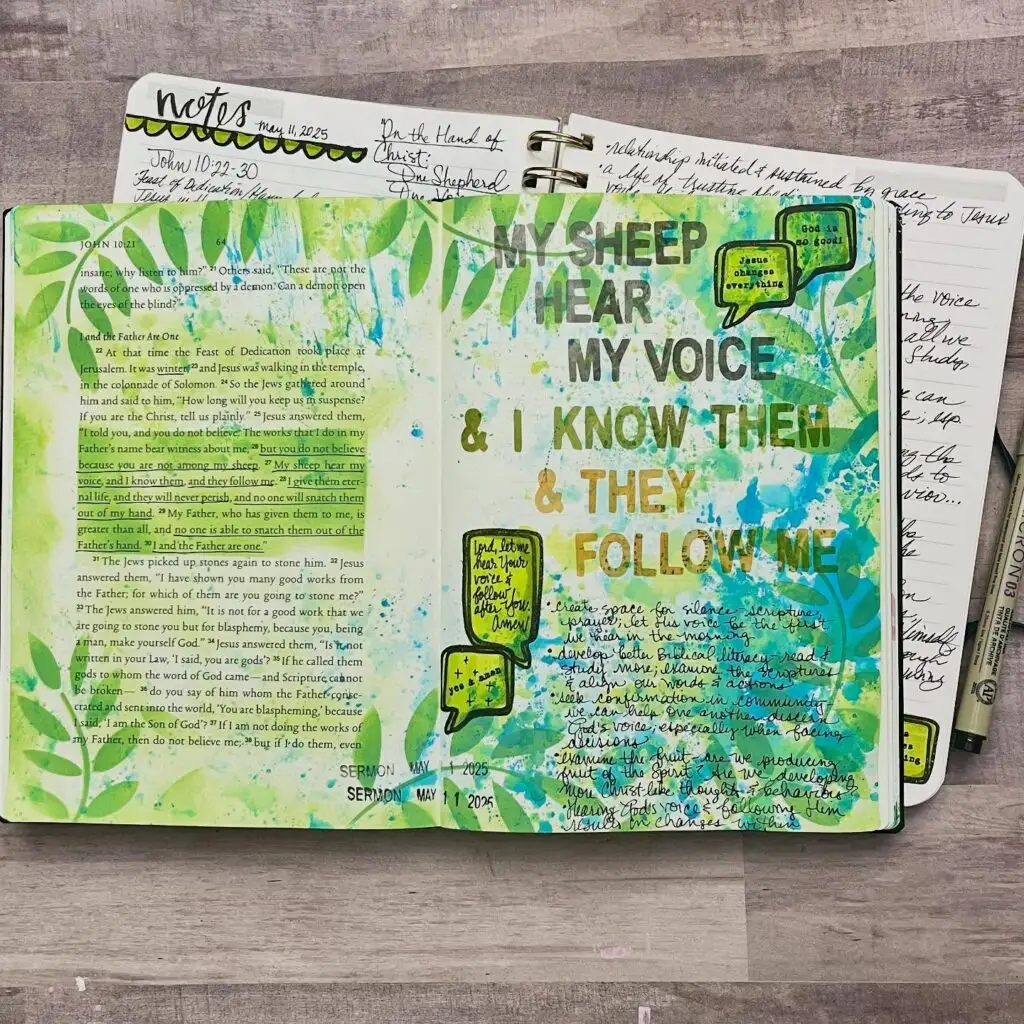 notes
May 11, 2025
John 10:22-30
Feast of Dedication/
Jesus in
"In the Hand of
Christ:
One Shepherd
One
•relationship initiated & sustained by grace
•a life of
to Jesus'
the voice
all we
study,
can
; esp.
JOHN 10:21 64
insane; why listen to him?" ²¹ Others said, "These are not the
words of one who is oppressed by a demon. Can a demon open
the eyes of the blind?"
I and the Father Are One
²² At that time the Feast of Dedication took place at
Jerusalem. It was winter, ²³ and Jesus was walking in the temple,
in the colonnade of Solomon. ²⁴ So the Jews gathered around
him and said to him, "How long will you keep us in suspense?
If you are the Christ, tell us plainly." ²⁵ Jesus answered them,
"I told you, and you do not believe. The works that I do in my
Father's name bear witness about me, ²⁶ but you do not believe
because you are not among my sheep. ²⁷ My sheep hear my
voice, and I know them, and they follow me. ²⁸ I give them eter-
nal life, and they will never perish, and no one will snatch them
out of my hand. ²⁹ My Father, who has given them to me, is
greater than all, and no one is able to snatch them out of the
Father's hand. ³⁰ I and the Father are one."
³¹ The Jews picked up stones again to stone him. ³² Jesus
answered them, "I have shown you many good works from
the Father; for which of them are you going to stone me?"
³³ The Jews answered him, "It is not for a good work that we
are going to stone you but for blasphemy, because you, being
a man, make yourself God." ³⁴ Jesus answered them, "Is it not
written in your Law, 'I said, you are gods'? ³⁵ If he called them
gods to whom the word of God came—and Scripture cannot
be broken— ³⁶ do you say of him whom the Father conse-
crated and sent into the world, 'You are blaspheming,' because
I said, 'I am the Son of God'? ³⁷ If I am not doing the works of
my Father, then do not believe me; ³⁸ but if I do them, even
SERMON MAY 1 2025
SERMON MAY 11 2025
MY SHEEP
HEAR
MY VOICE
& I KNOW THEM
& THEY
FOLLOW ME
God is
so good!
Jesus
changes
everything
Lord, let me
hear Your
voice &
follow
after You.
Amen!
yes & amen
•create space for silence, scripture,
prayer; let His voice be the first
we hear in the morning
•develop better Biblical literacy—read &
study more; examine the scriptures
& align our words & actions
•seek confirmation in community—
we can help one another discern
God's voice, especially when facing
decisions
•examine the fruit—are we producing
fruit of the Spirit? Are we developing
more Christ-like thoughts & behaviors?
•Hearing God's voice & following Him
results in changes within